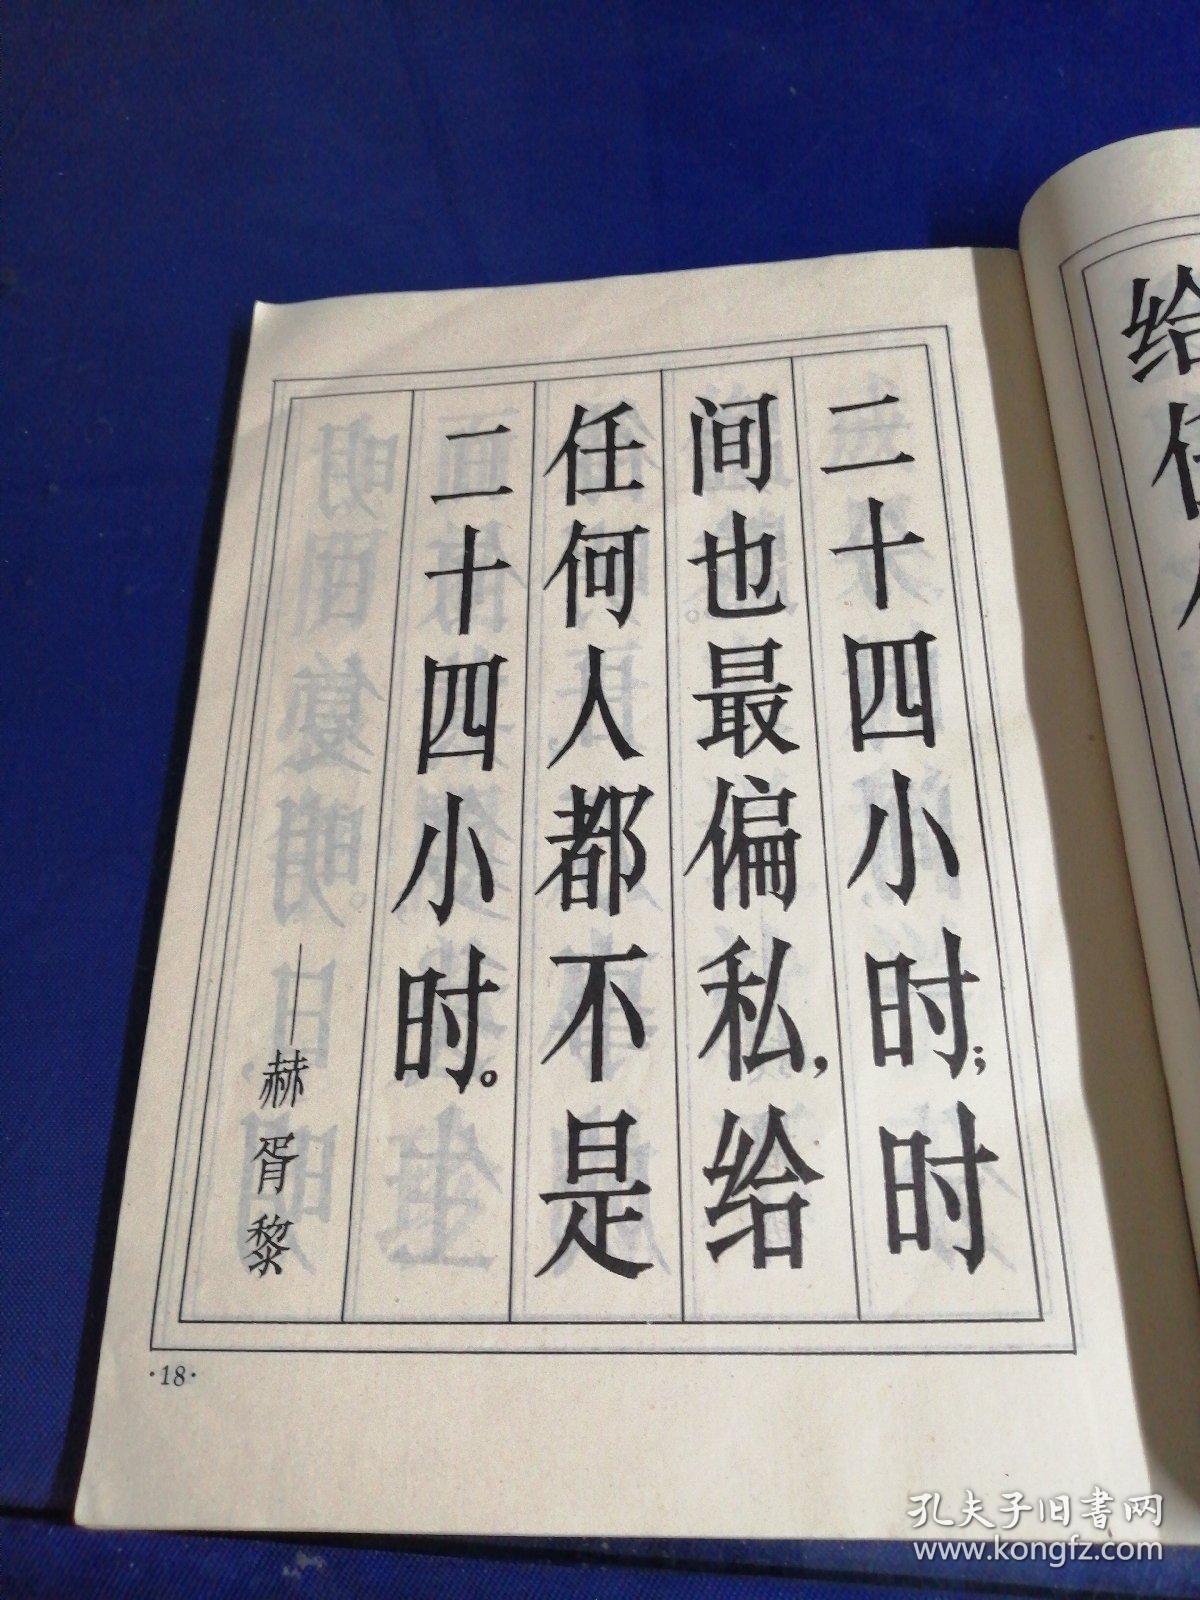 二十四小时；时
间也最偏私，给
任何人都不是
二十四小时。
——赫胥黎
·18·
给
孔夫子旧书网
www.kongfz.com